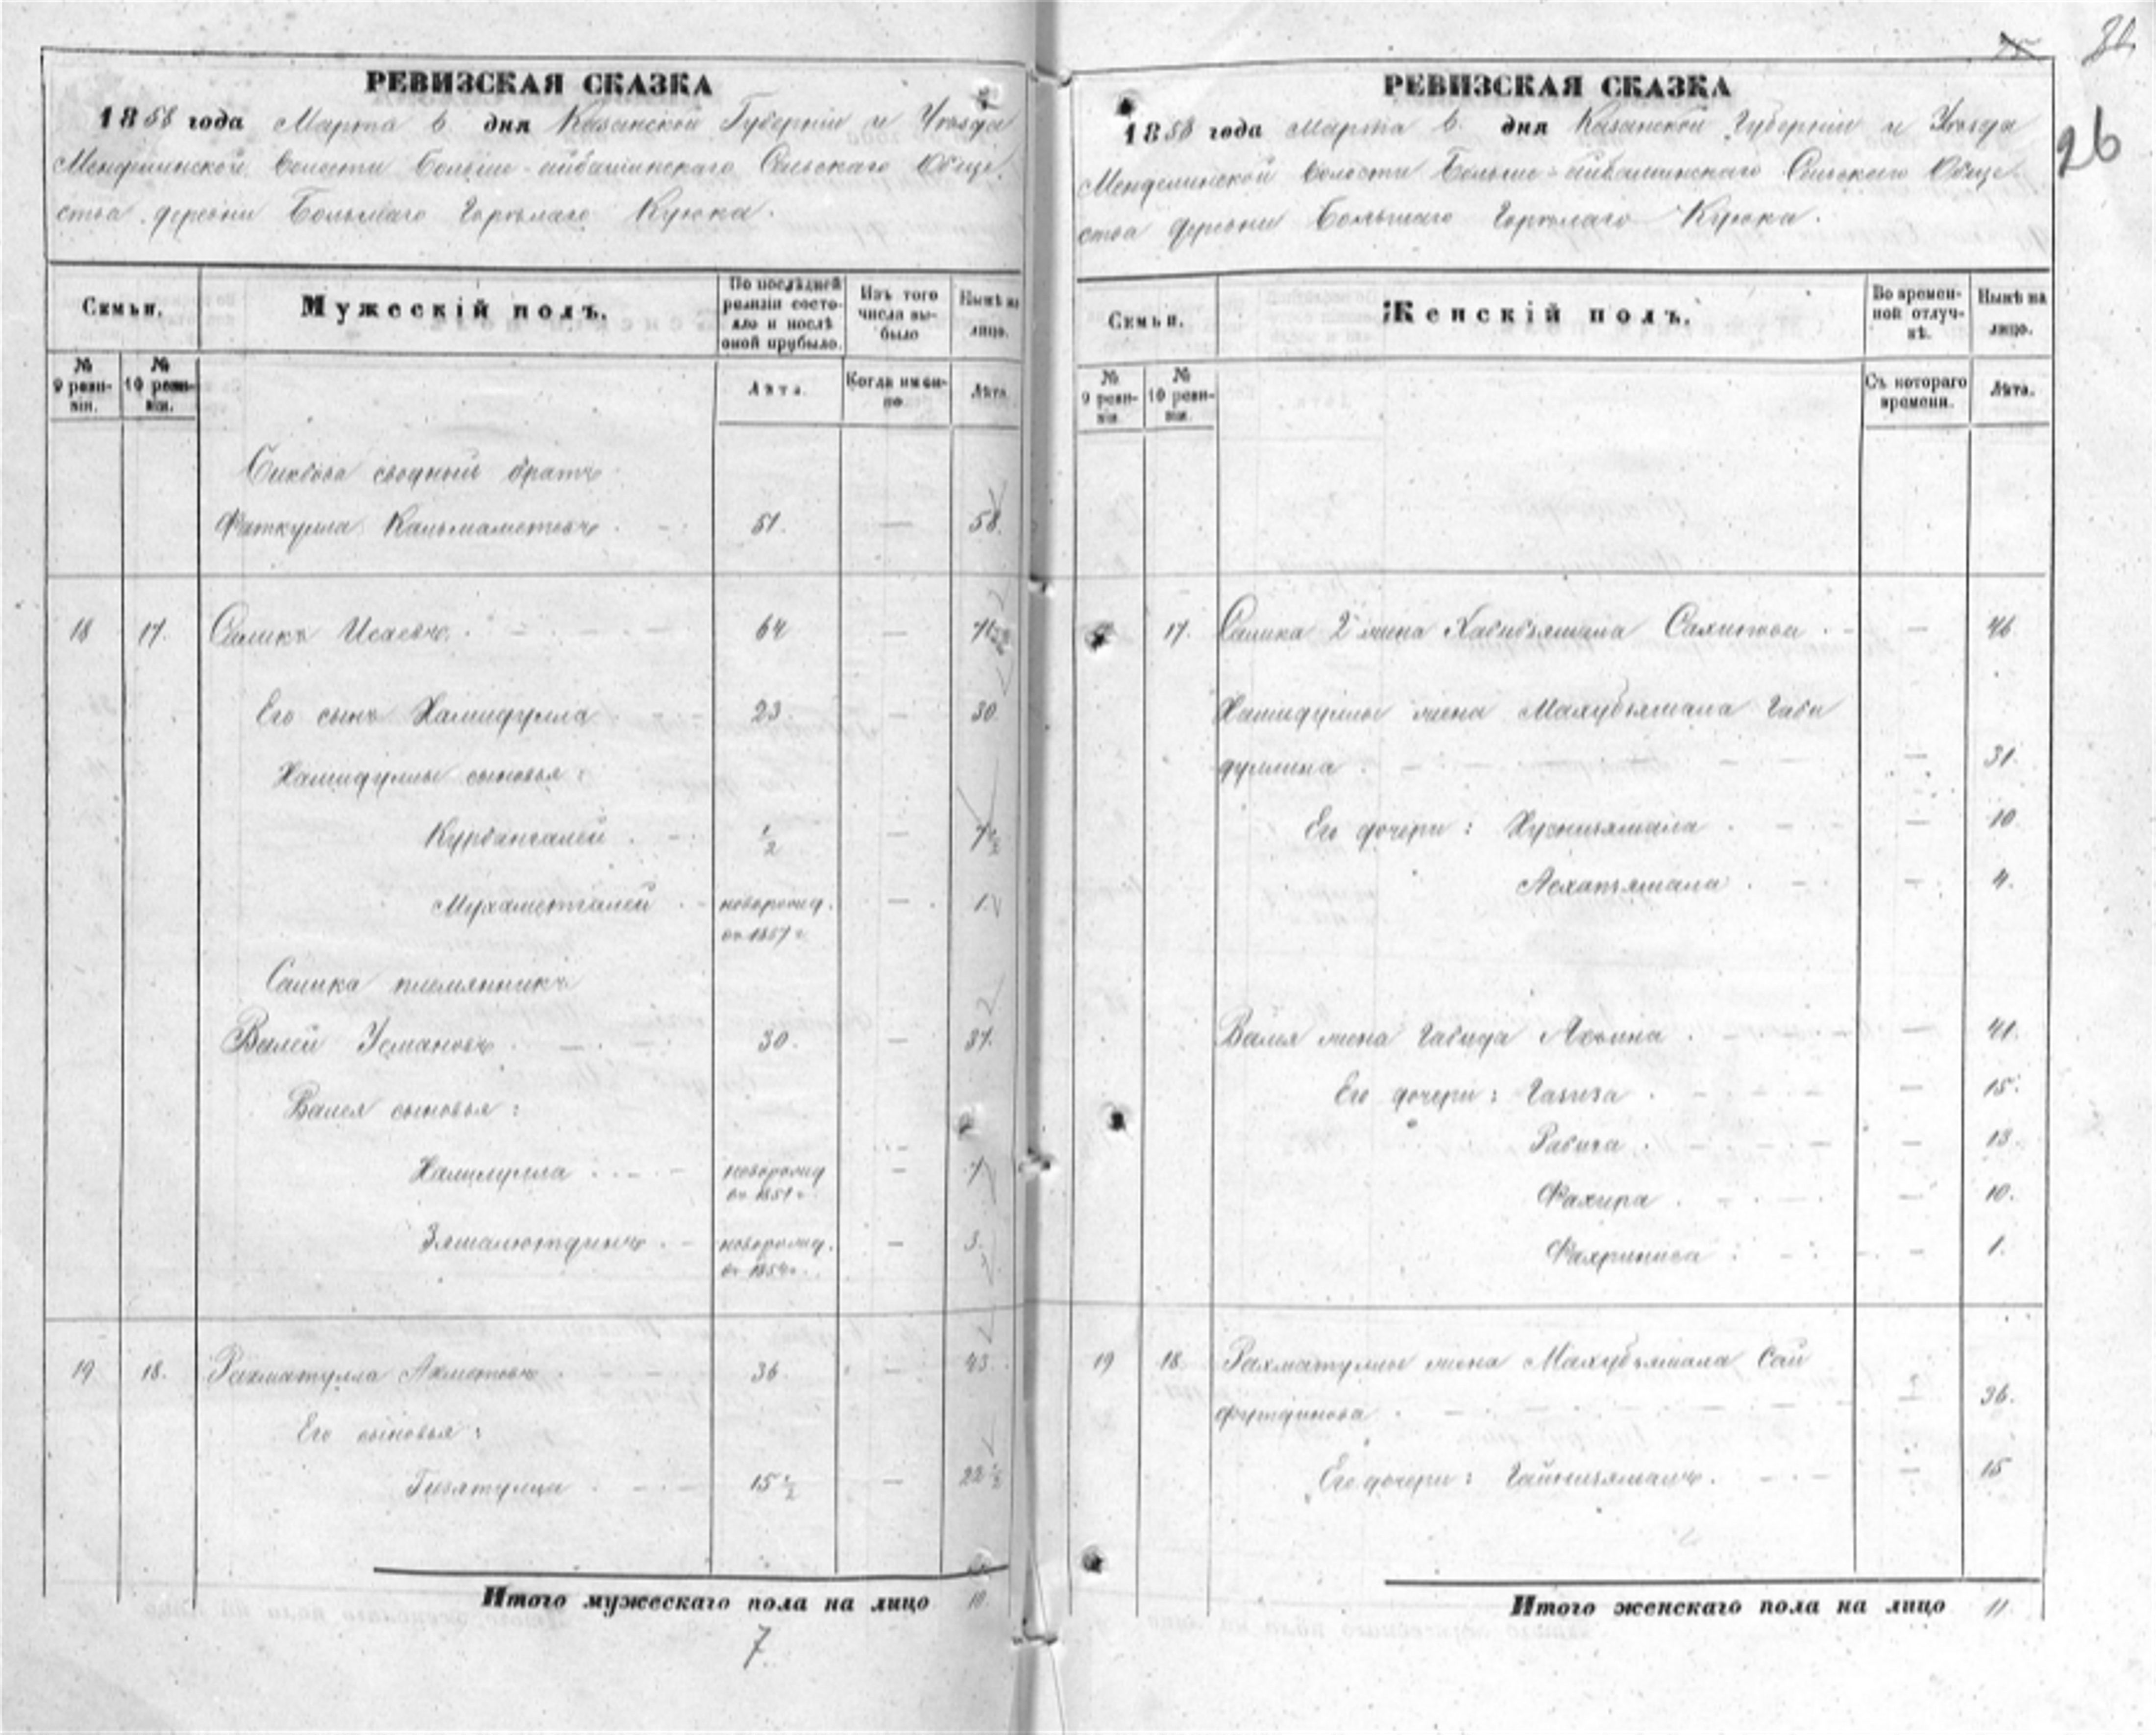 26
РЕВИЗСКАЯ СКАЗКА
1858 года Марта 6 дня Казанской Губерніи и Уѣзда
Менделинской волости Больше-айбашинскаго Сельскаго Обще-
ства деревни Большаго Горѣлаго Куюка.
Семьи.
Мужескій полъ.
По послѣдней ревизіи состояло и послѣ оной прибыло.
Изъ того числа выбыло
Нынѣ на лицо.
№ 9 ревизіи.
№ 10 ревизіи.
Лѣта.
Когда именно.
Лѣта.
сводный братъ
Фаткулла Кальмаметевъ 51. — 58.
18 17. Салихъ Исаевъ. 64 — 71
Его сынъ Хамидулла 23 — 30
Хамидуллы сыновья:
Курбангалей ½ — 7½
Мухаметгалей новорожд. — 1
въ 1857 г.
Салиха племянникъ
Валей Усмановъ 30. — 37.
Валея сыновья:
Халиулла новорожд — 7
въ 1851 г.
Зямалютдинъ новорожд. — 3.
въ 1854 г.
19 18. Рахматулла Ахметовъ 36 — 43.
Его сыновья:
Гизятулла 15½ — 22½
Итого мужескаго пола на лицо 10
7
РЕВИЗСКАЯ СКАЗКА
1858 года Марта 6. дня Казанской Губерніи и Уѣзда
Менделинской волости Больше-айбашинскаго Сельскаго Обще-
ства деревни Большаго Горѣлаго Куюка.
Семьи.
Женскій полъ.
Во временной отлучкѣ.
Нынѣ на лицо.
№ 9 ревизіи.
№ 10 ревизіи.
Съ котораго времени.
Лѣта.
17. Салиха 2 жена Хабибзямала — 46
Хамидуллы жена Махубзямала Габи
дуллина — 31.
Его дочери: Хуснизямала — 10
Асхапзямала — 4.
Валея жена Габида — 41.
Его дочери: Газиза — 15.
Рабига — 13.
Фахира — 10.
Фахриниса — 1.
19 18. Рахматуллы жена Махубзямала Сай
футдинова — 36.
Его дочери: Гайнизямалъ. — 15
Итого женскаго пола на лицо 11